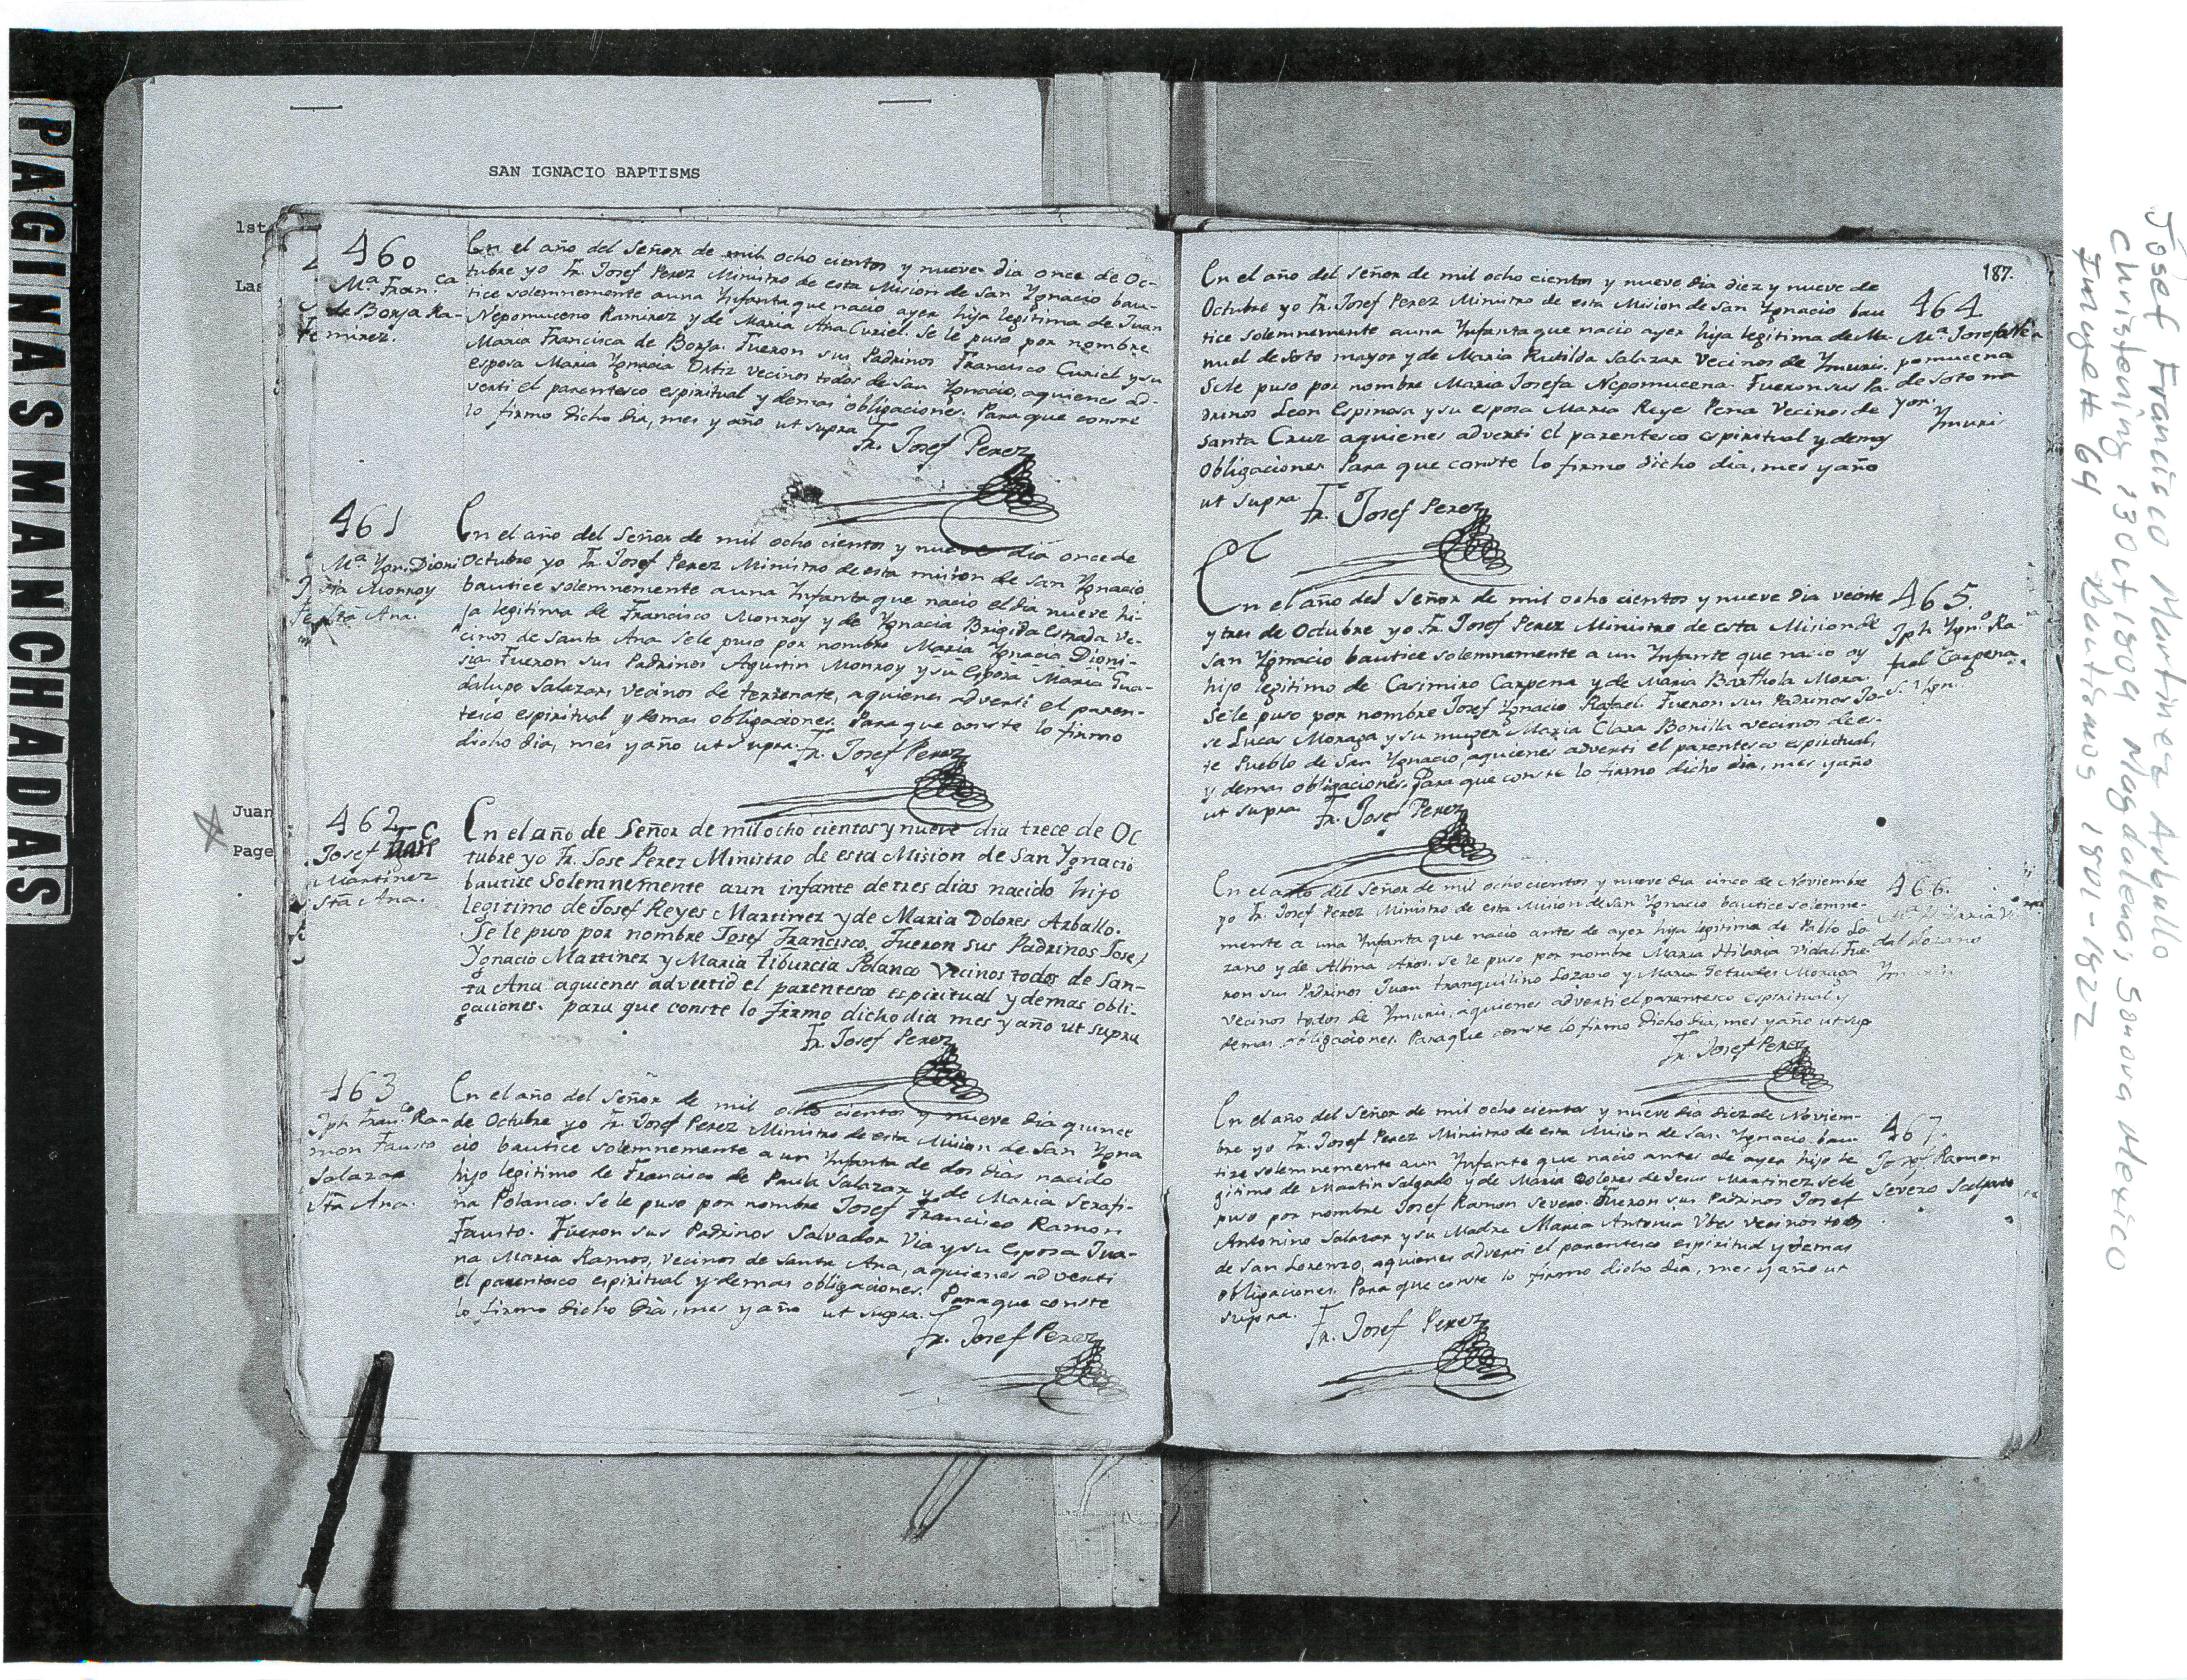 PAGINAS MANCHADAS
SAN IGNACIO BAPTISMS
1st
Las
Juan
Page
460
Mª. Fran.ca
de Borja Ra-
mirez.
En el año del Señor de mil ocho cientos y nueve dia once de Oc-
tubre yo Fr. Josef Perez Ministro de esta Mision de San Ygnacio bau-
tice solemnemente auna Ynfanta que nació ayer hija legitima de Juan
Nepomuceno Ramirez y de Maria Ana Curiel. Se le puso por nombre
Maria Francisca de Borja. Fueron sus Padrinos Francisco Curiel y su
esposa Maria Ygnacia Ortiz vecinos todos de San Ygnacio, aquienes ad-
verti el parentesco espiritual y demas obligaciones. Para que conste
lo firmo dicho dia, mes y año ut supra
Fr. Josef Perez
461
Mª. Ygn. Dioni
sia Monroy
Sta Ana.
En el año del Señor de mil ocho cientos y nueve dia once de
Octubre yo Fr. Josef Perez Ministro de esta mision de San Ygnacio
bautice solemnemente auna Ynfanta que nació el dia nueve hi-
ja legitima de Francisco Monroy y de Ygnacia Brigida Estrada Ve-
cinos de Santa Ana sele puso por nombre Maria Ygnacia Dioni-
sia. Fueron sus Padrinos Agustin Monroy y su Esposa Maria Gua-
dalupe Salazar, vecinos de terrenate, aquienes adverti el paren-
tesco espiritual y demas obligaciones. Para que conste lo firmo
dicho dia, mes y año ut supra. Fr. Josef Perez
462
Josef
Martinez
Sta Ana.
En el año de Señor de mil ocho cientos y nueve dia trece de Oc
tubre yo Fr. Jose Perez Ministro de esta Mision de San Ygnacio
bautize Solemnemente aun infante de tres dias nacido hijo
legitimo de Josef Reyes Martinez y de Maria Dolores Arballo.
Se le puso por nombre Josef Francisco. Fueron sus Padrinos Josef
Ygnacio Martinez y Maria tiburcia Polanco Vecinos todos de San-
ta Ana aquienes advertid el parentesco espiritual y demas obli-
gaciones. para que conste lo firmo dicho dia mes y año ut supra
Fr. Josef Perez
463
Jph Fran.co Ra-
mon Fausto
Salazar
Sta Ana.
En el año del Señor de mil ocho cientos y nueve dia quince
de Octubre yo Fr. Josef Perez Ministro de esta Mision de San Ygna
cio bautice solemnemente a un Ynfante de dos dias nacido
hijo legitimo de Francisco de Paula Salazar y de Maria Serafi-
na Polanco. Se le puso por nombre Josef Francisco Ramon
Fausto. Fueron sus Padrinos Salvador Via y su Esposa Jua-
na Maria Ramos, Vecinos de Santa Ana, aquienes adverti
el parentesco espiritual y demas obligaciones. Para que conste
lo firmo dicho Dia, mes y año ut supra.
Fr. Josef Perez
187.
En el año del Señor de mil ocho cientos y nueve dia diez y nueve de
Octubre yo Fr. Josef Perez Ministro de esta Mision de San Ygnacio bau
tice solemnemente auna Ynfanta que nacio ayer hija legitima de Ma-
nuel de Soto mayor y de Maria Rutilda Salazar Vecinos de Ymuris.
Sele puso por nombre Maria Josefa Nepomucena. Fueron sus Pa-
drinos Leon Espinosa y su esposa Maria Reyes Pena Vecinos de
Santa Cruz aquienes adverti el parentesco espiritual y demas
obligaciones Para que conste lo firmo dicho dia, mes y año
ut supra. Fr. Josef Perez
464
Mª. Josefa Ne
pomucena
de Soto ma
yor.
Ymuris
En el año del Señor de mil ocho cientos y nueve dia veinte
y tres de Octubre yo Fr. Josef Perez Ministro de esta Mision de
San Ygnacio bautice solemnemente a un Ynfante que nacio oy
hijo legitimo de Casimiro Carpena y de Maria Barthola Mora.
Se le puso por nombre Josef Ygnacio Rafael. Fueron sus Padrinos Jo-
se Lucas Moraga y su muger Maria Clara Bonilla vecinos de es-
te Pueblo de San Ygnacio, aquienes adverti el parentesco espiritual,
y demas obligaciones. Para que conste lo firmo dicho dia, mes y año
ut supra. Fr. Josef Perez
465.
Jph Ygn.o Ra-
fael Carpena
S. Ygn.
En el año del Señor de mil ocho cientos y nueve dia cinco de Noviembre
yo Fr. Josef Perez Ministro de esta Mision de San Ygnacio bautice solemne-
mente a una Ynfanta que nacio antes de ayer hija legitima de Pablo Lo
zano y de Albina Aros. Se le puso por nombre Maria Hilaria Vidal. Fue-
ron sus Padrinos Juan tranquilino Lozano y Maria Getrudes Moraga
vecinos todos de Ymuris, aquienes adverti el parentesco espiritual y
demas obligaciones. Para que conste lo firmo dicho dia, mes y año ut sup
Fr. Josef Perez
466.
Mª. Hilaria Vi
dal Lozano
Ymuris
En el año del Señor de mil ocho cientos y nueve dia diez de Noviem-
bre yo Fr. Josef Perez Ministro de esta Mision de San Ygnacio bau
tize solemnemente aun Ynfante que nacio antes de ayer hijo le
gitimo de Martin Salgado y de Maria Dolores de Jesus Martinez sele
puso por nombre Josef Ramon Severo. Fueron sus Padrinos Josef
Antonino Salazar y su Madre Maria Antonia Vbes vecinos todos
de San Lorenzo, aquienes adverti el parentesco espiritual y demas
obligaciones. Para que conste lo firmo dicho dia, mes y año ut
supra. Fr. Josef Perez
467.
Josef Ramon
Severo Salgado
Josef Francisco Martinez Arbullo
Christening 13 Oct 1809 Magdalena, Sonora Mexico
Image # 64 Bautismos 1801-1822